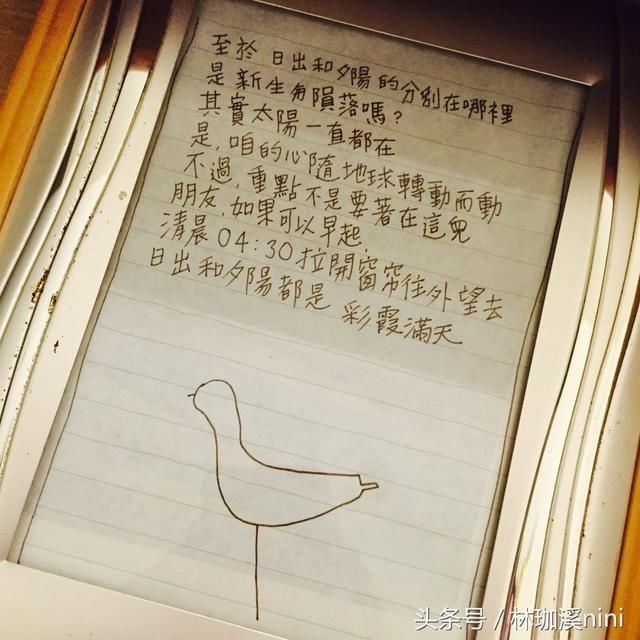 至於 日出和夕陽的分別在哪裡
是新生與隕落嗎?
其實太陽一直都在
是,咱的心隨地球轉動而動
不過,重點不是要著在這兒
朋友,如果可以早起
清晨04:30拉開窗帘往外望去
日出和夕陽都是 彩霞滿天
头条号 / 林珈溪nini